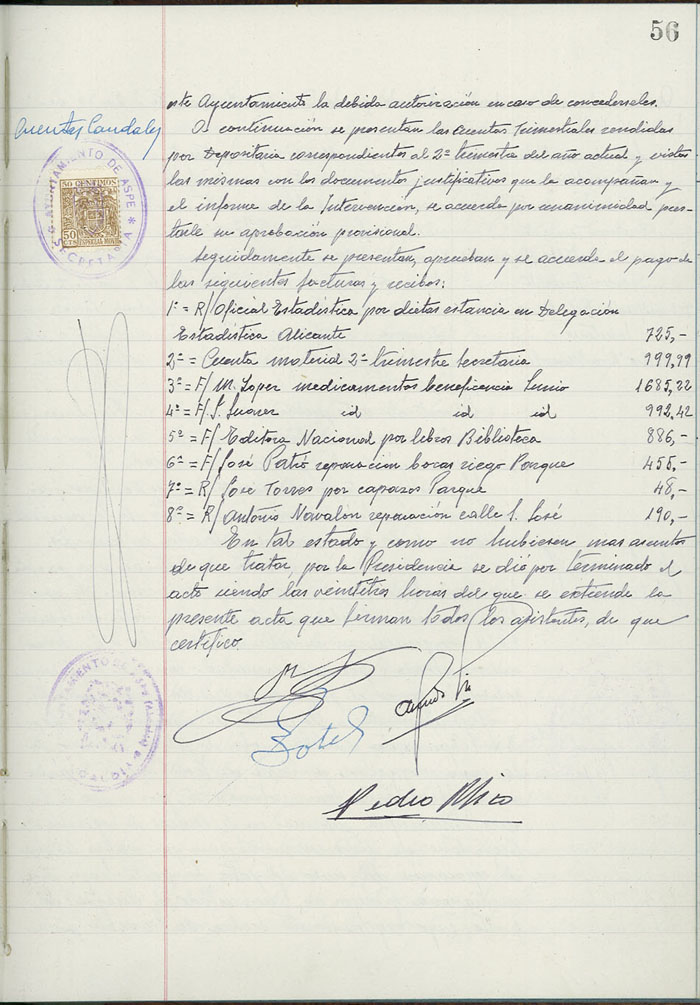 56
este Ayuntamiento la debida autorización en caso de concederseles.
Cuentas Caudales
A continuación se presentan las Cuentas Trimestrales rendidas
por Depositaria correspondientes al 2º trimestre del año actual y vistas
las mismas con los documentos justificativos que la acompañan y
el informe de la Intervención, se acuerda por unanimidad pres-
tarle su aprobación provisional.
AYUNTAMIENTO DE ASPE
SECRETARIA
50 CENTIMOS
50 CTS ESPECIAL MOVIL
Seguidamente se presentan, aprueban y se acuerda el pago de
las siguientes facturas y recibos:
1º = R/ Oficial Estadística por dietas estancia en Delegación
Estadística Alicante 725,-
2º = Cuenta material 2º trimestre Secretaria 999,99
3º = F/ M. Lopez medicamentos beneficencia Junio 1685,22
4º = F/ J. Suarez id id id 992,42
5º = F/ Editora Nacional por libros Biblioteca 886,-
6º = F/ José Patró reparacion bocas riego Parque 455,-
7º = R/ José Torres por capazos Parque 48,-
8º = R/ Antonio Navalon reparación calle S. José 190,-
En tal estado y como no hubiesen mas asuntos
de que tratar, por la Presidencia se dió por terminado el
acto siendo las veintitres horas del que se extiende la
presente acta que firman todos los asistentes, de que
certifico.
AYUNTAMIENTO DE ASPE
Botel
Pedro Mico